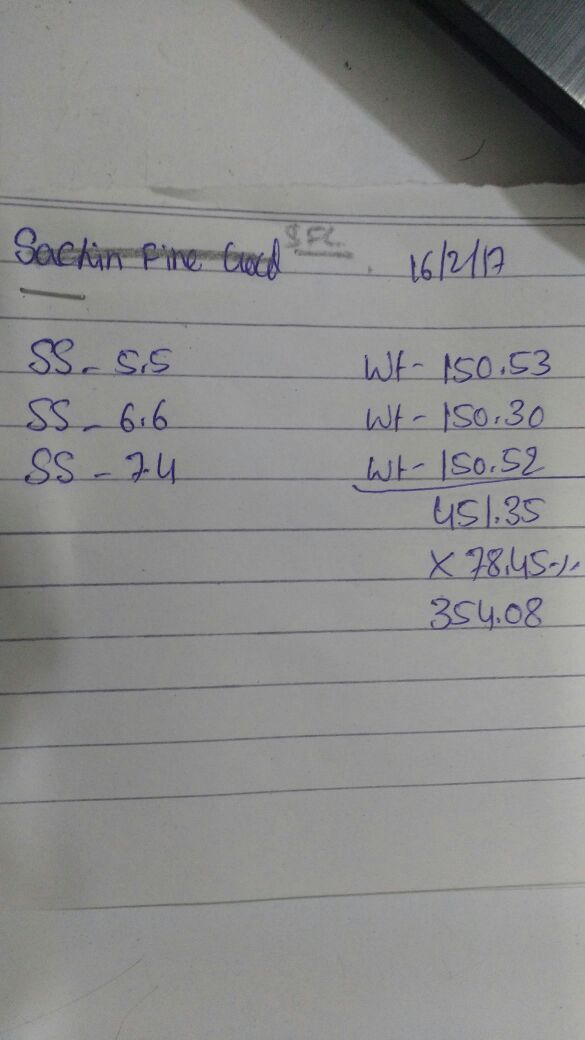 Sachin Fine Gold SFC. 16/2/17
SS - 5.5 Wt - 150.53
SS - 6.6 Wt - 150.30
SS - 7.4 Wt - 150.52
451.35
X 78.45 -/-
354.08